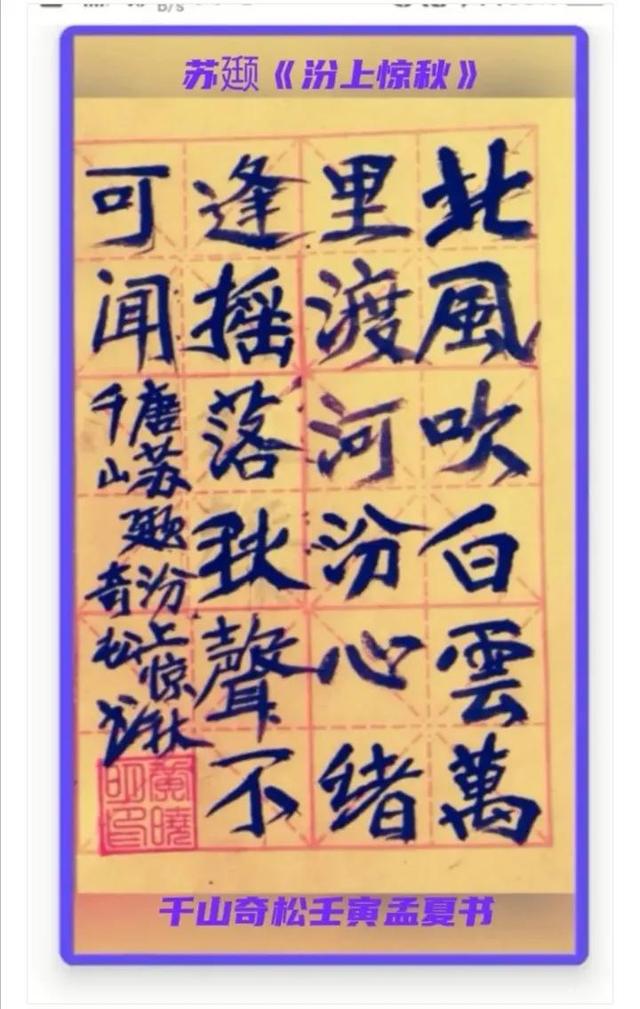 B/s
苏颋《汾上惊秋》
北風吹白雲萬
里渡河汾心绪
逢摇落秋聲不
可闻
唐苏颋汾上惊秋
千山奇松书
黄曉
明印
千山奇松壬寅孟夏书